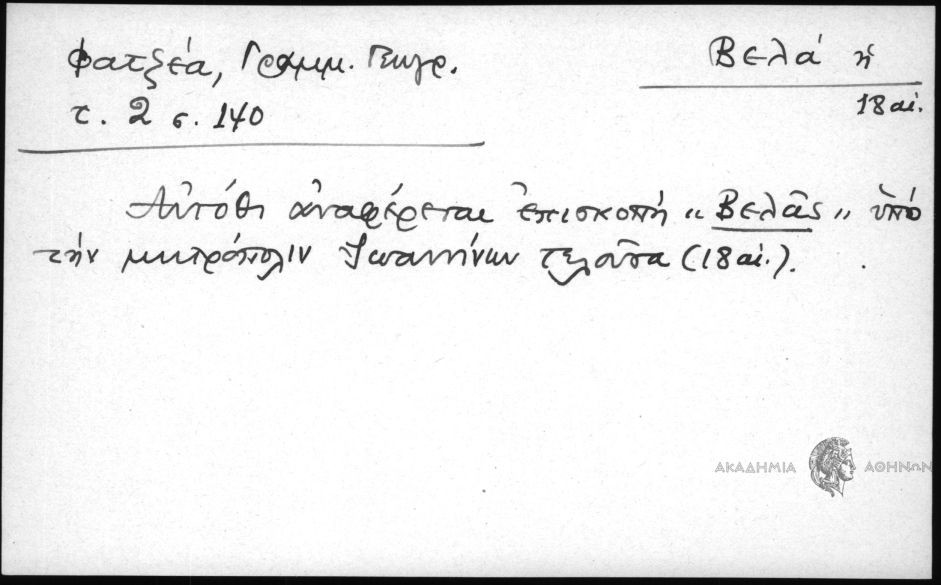 Φατζέα, Γραμμ. Γεωγρ.
τ. 2 σ. 140
Βελά ἡ
18 αἰ.
Αὐτόθι ἀναφέρεται ἐπισκοπή „Βελᾶς„ ὑπό
τήν μητρόπολιν Ἰωαννίνων τελοῦσα (18 αἰ.).
ΑΚΑΔΗΜΙΑ ΑΘΗΝΩΝ